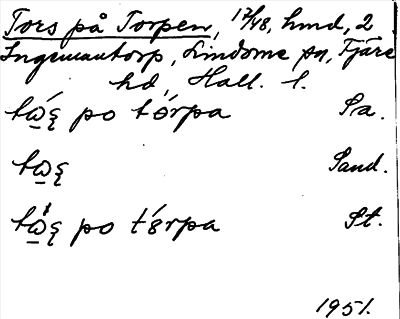 Tors på Torpen, 17/48, hmd, 2
Ingemantorp, Lindome sn, Fjäre
hd, Hall. l.
po tórpa Sa.
Sand.
po St.
1951.